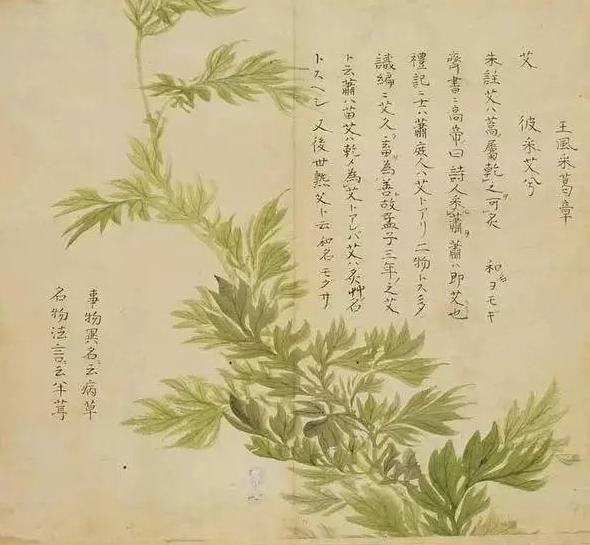 王風采葛章
艾 彼采艾兮
朱註艾ハ蒿屬乾之可炙 和名ヨモギ
齊書ニ高帝曰詩人采蕭蕭ハ即艾也
禮記ニ士ハ蕭庶人ハ艾トアリ二物トス多ク
識編ニ艾久畜為善故孟子三年之艾
ト云蕭ハ苗艾ハ乾メ為艾トアレバ艾ハ炙艸名
トスヘシ 又後世熟艾ト云和名モクサ
事物異名云病草
名物法言云